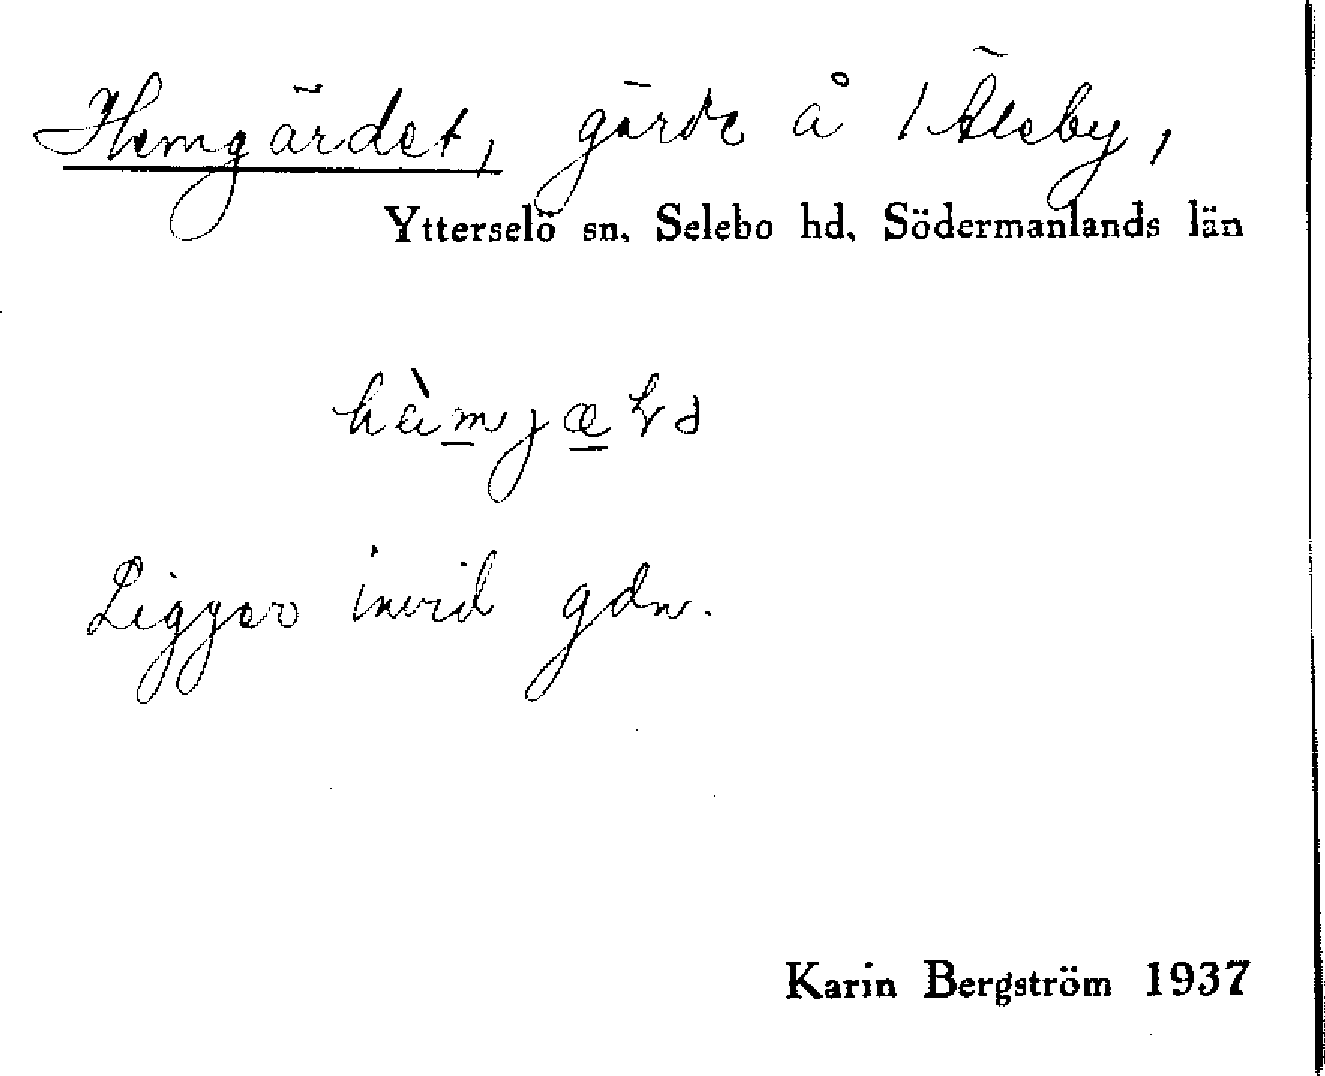 Hemgärdet, gärde å 1 Äleby,
Ytterselö sn. Selebo hd. Södermanlands län
Ligger invid gdn.
Karin Bergström 1937